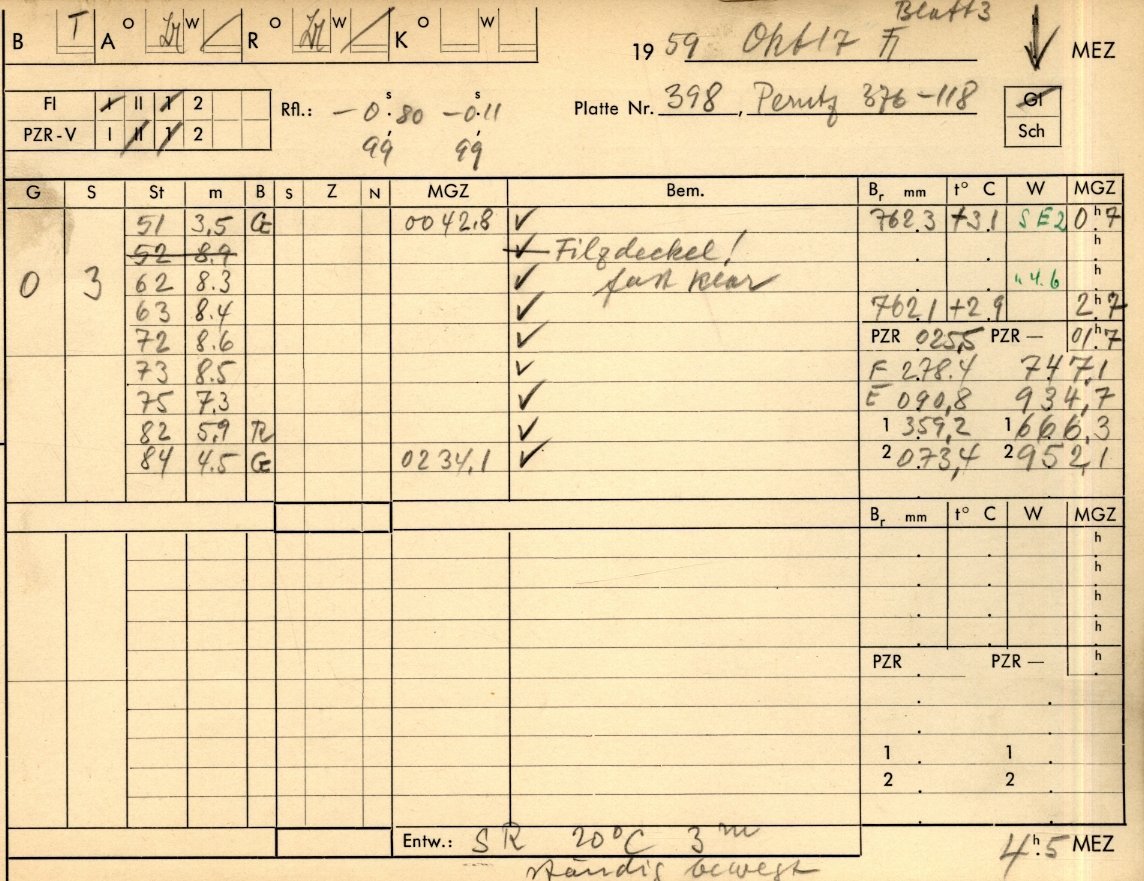 Blatt 3
B T A O W R O W K O W 19 59 Okt 17 MEZ
FI I II 1 2 Rfl.: -0.ˢ80 -0.ˢ11 Platte Nr. 398, Perutz 376-118 Gl
PZR-V I II 1 2 99 99 Sch
G S St m B S Z N MGZ Bem. Bᵣ mm t° C W MGZ
51 3,5 G 0042,8 ✓ 762.3 +3.1 SE2 0ʰ.7
52 8.9 ✓ Filzdeckel! h
0 3 62 8.3 ✓ fast klar "4.6 h
63 8.4 ✓ 762.1 +2.9 2ʰ.7
72 8.6 ✓ PZR 025,5 PZR — 01ʰ.7
73 8.5 ✓ F 278.4 747,1
75 7.3 ✓ E 090,8 934,7
82 5,9 R ✓ 1 359,2 1 666,3
84 4.5 G 0234,1 ✓ 2 073,4 2 952,1
Bᵣ mm t° C W MGZ
h
h
h
h
PZR PZR — h
1 1
2 2
Entw.: SR 20°C 3ᵐ 4ʰ.5 MEZ
ständig bewegt